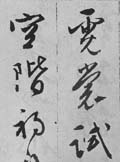 霓裳試
空階初